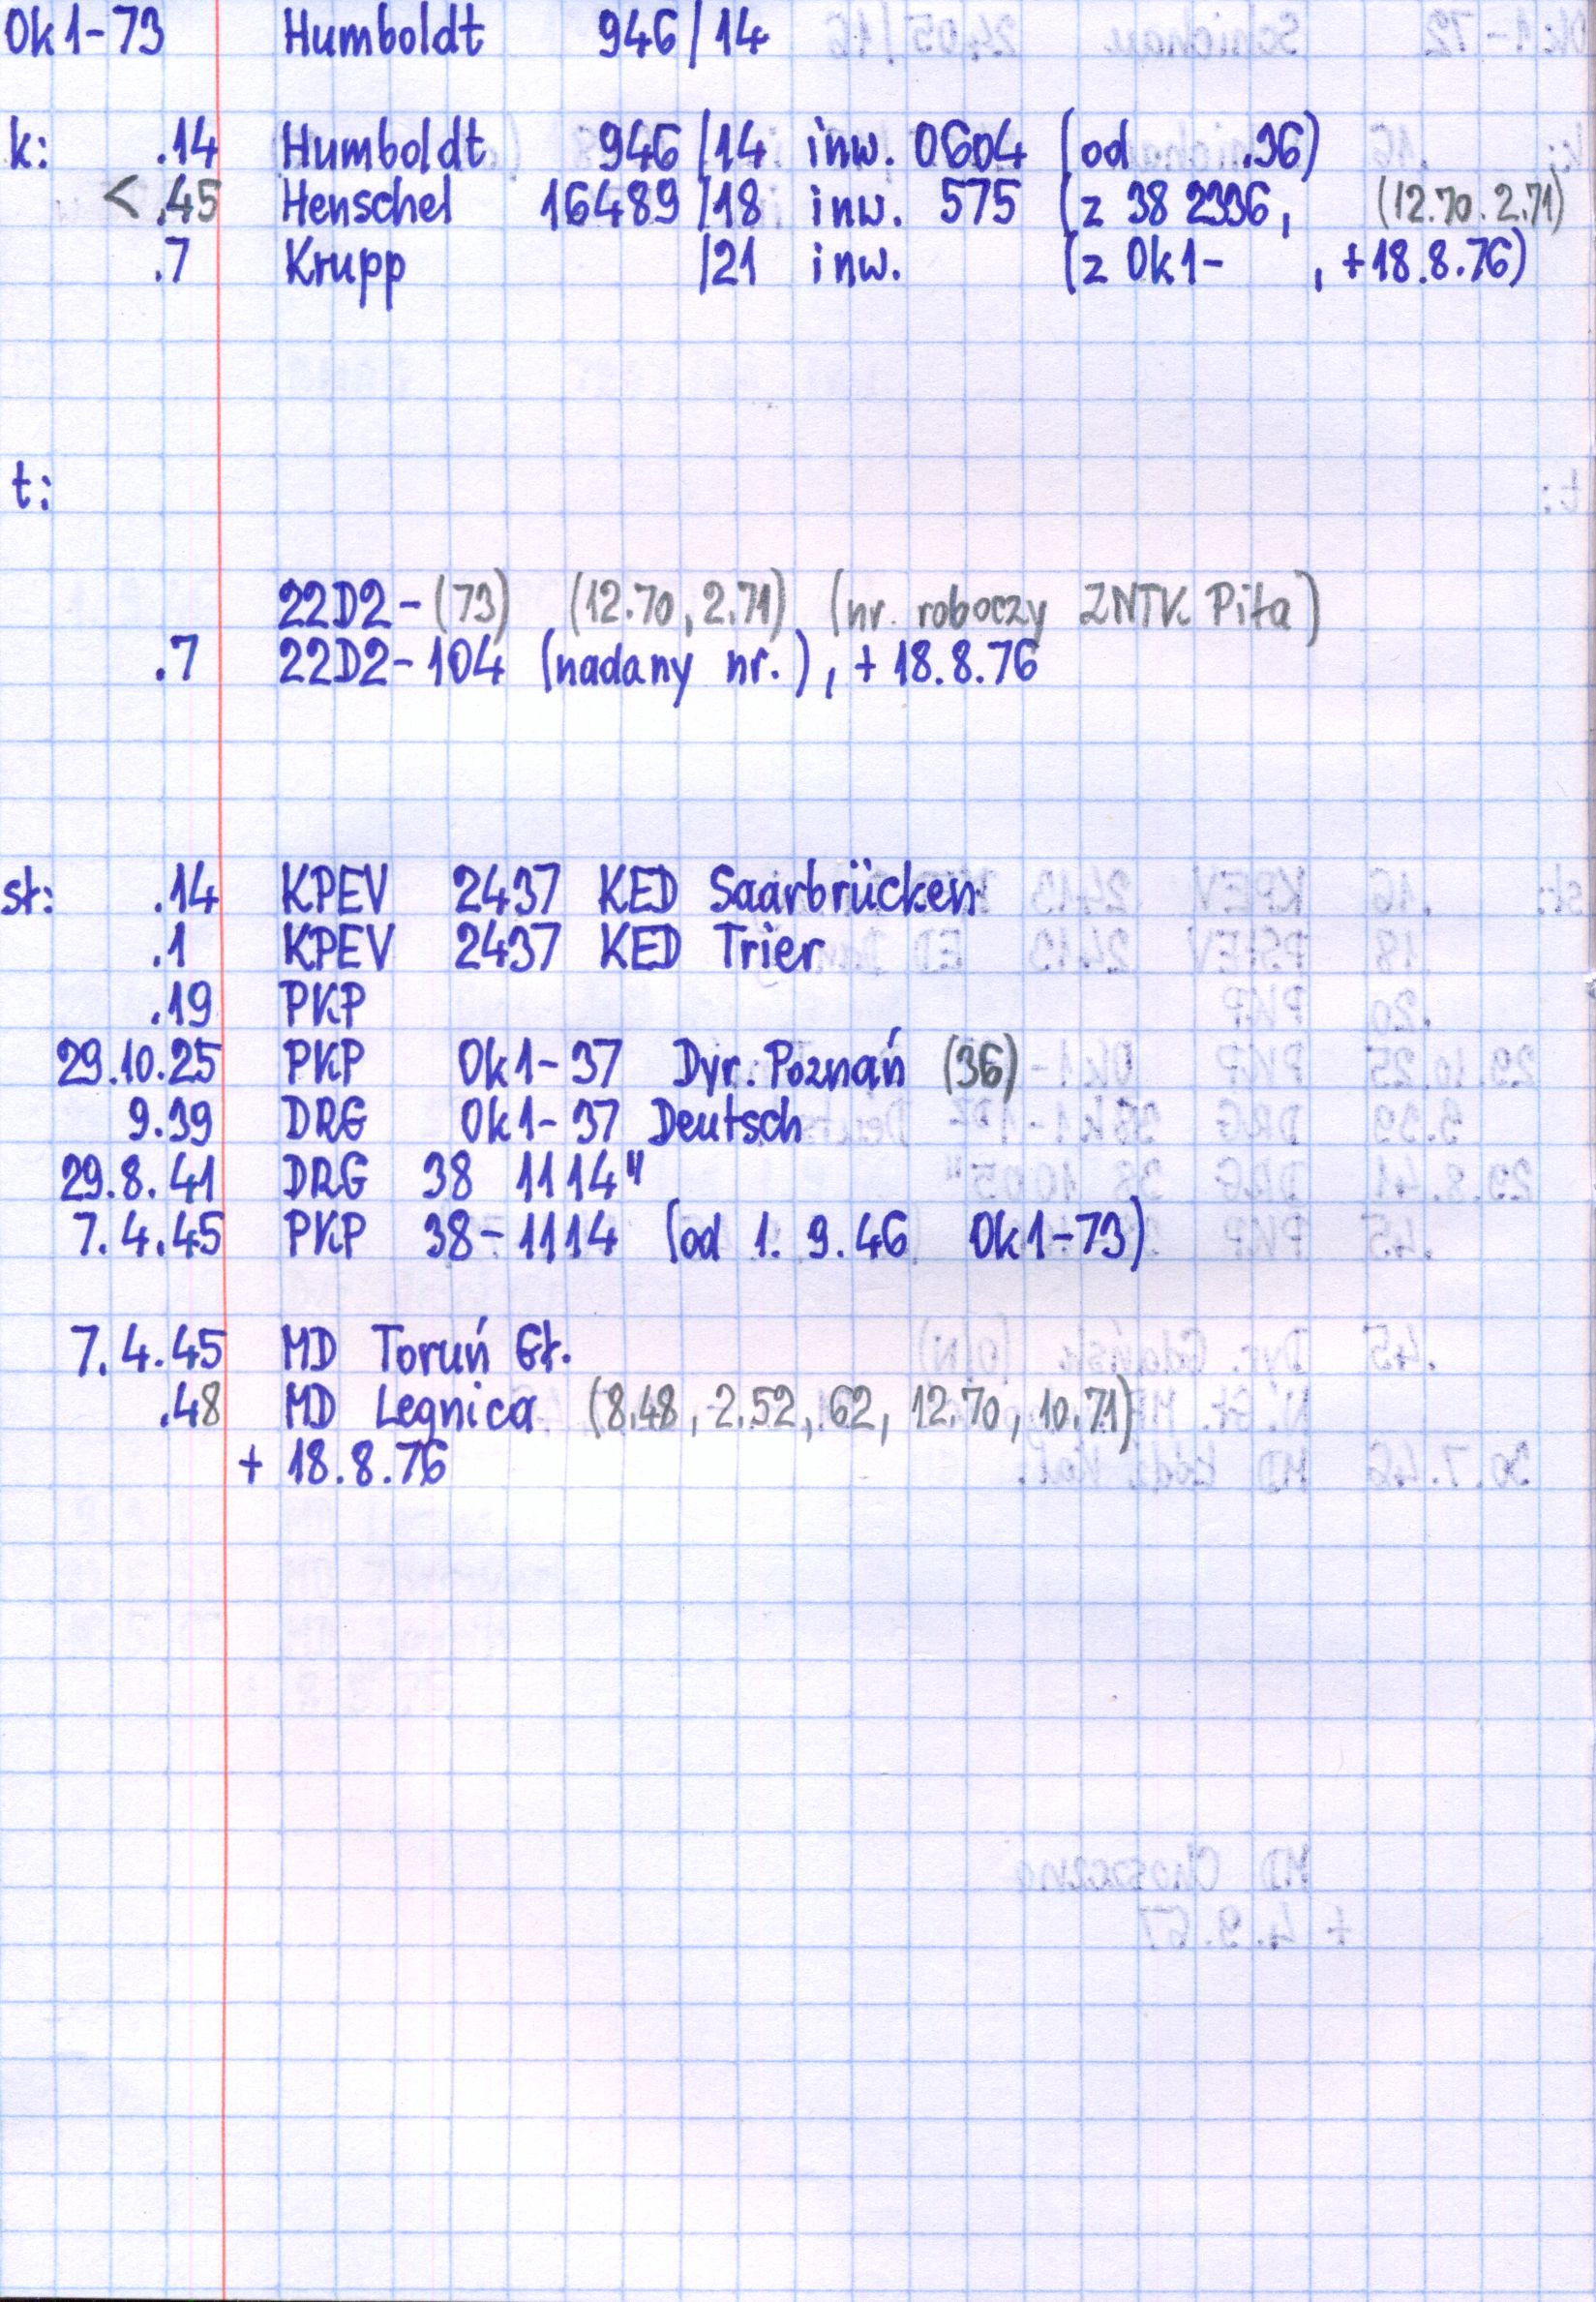 Ok1-73 Humboldt 946/14
k: .14 Humboldt 946/14 inw. 0604 (od .36)
< .45 Henschel 16489/18 inw. 575 (z 38 2336, (12.70. 2.71)
.7 Krupp /21 inw. (z Ok1- , +18.8.76)
t:
22D2-(73) (12.70, 2.71) (nr. roboczy ZNTK Piła)
.7 22D2-104 (nadany nr.), + 18.8.76
st: .14 KPEV 2437 KED Saarbrücken
.1 KPEV 2437 KED Trier
.19 PKP
29.10.25 PKP Ok1-37 Dyr. Poznań (36)
9.39 DRG Ok1-37 Deutsch
29.8.41 DRG 38 1114"
7.4.45 PKP 38-1114 (od 1. 9.46 Ok1-73)
7.4.45 MD Toruń Gł.
.48 MD Legnica (8.48, 2.52, 62, 12.70, 10.71)
+ 18.8.76